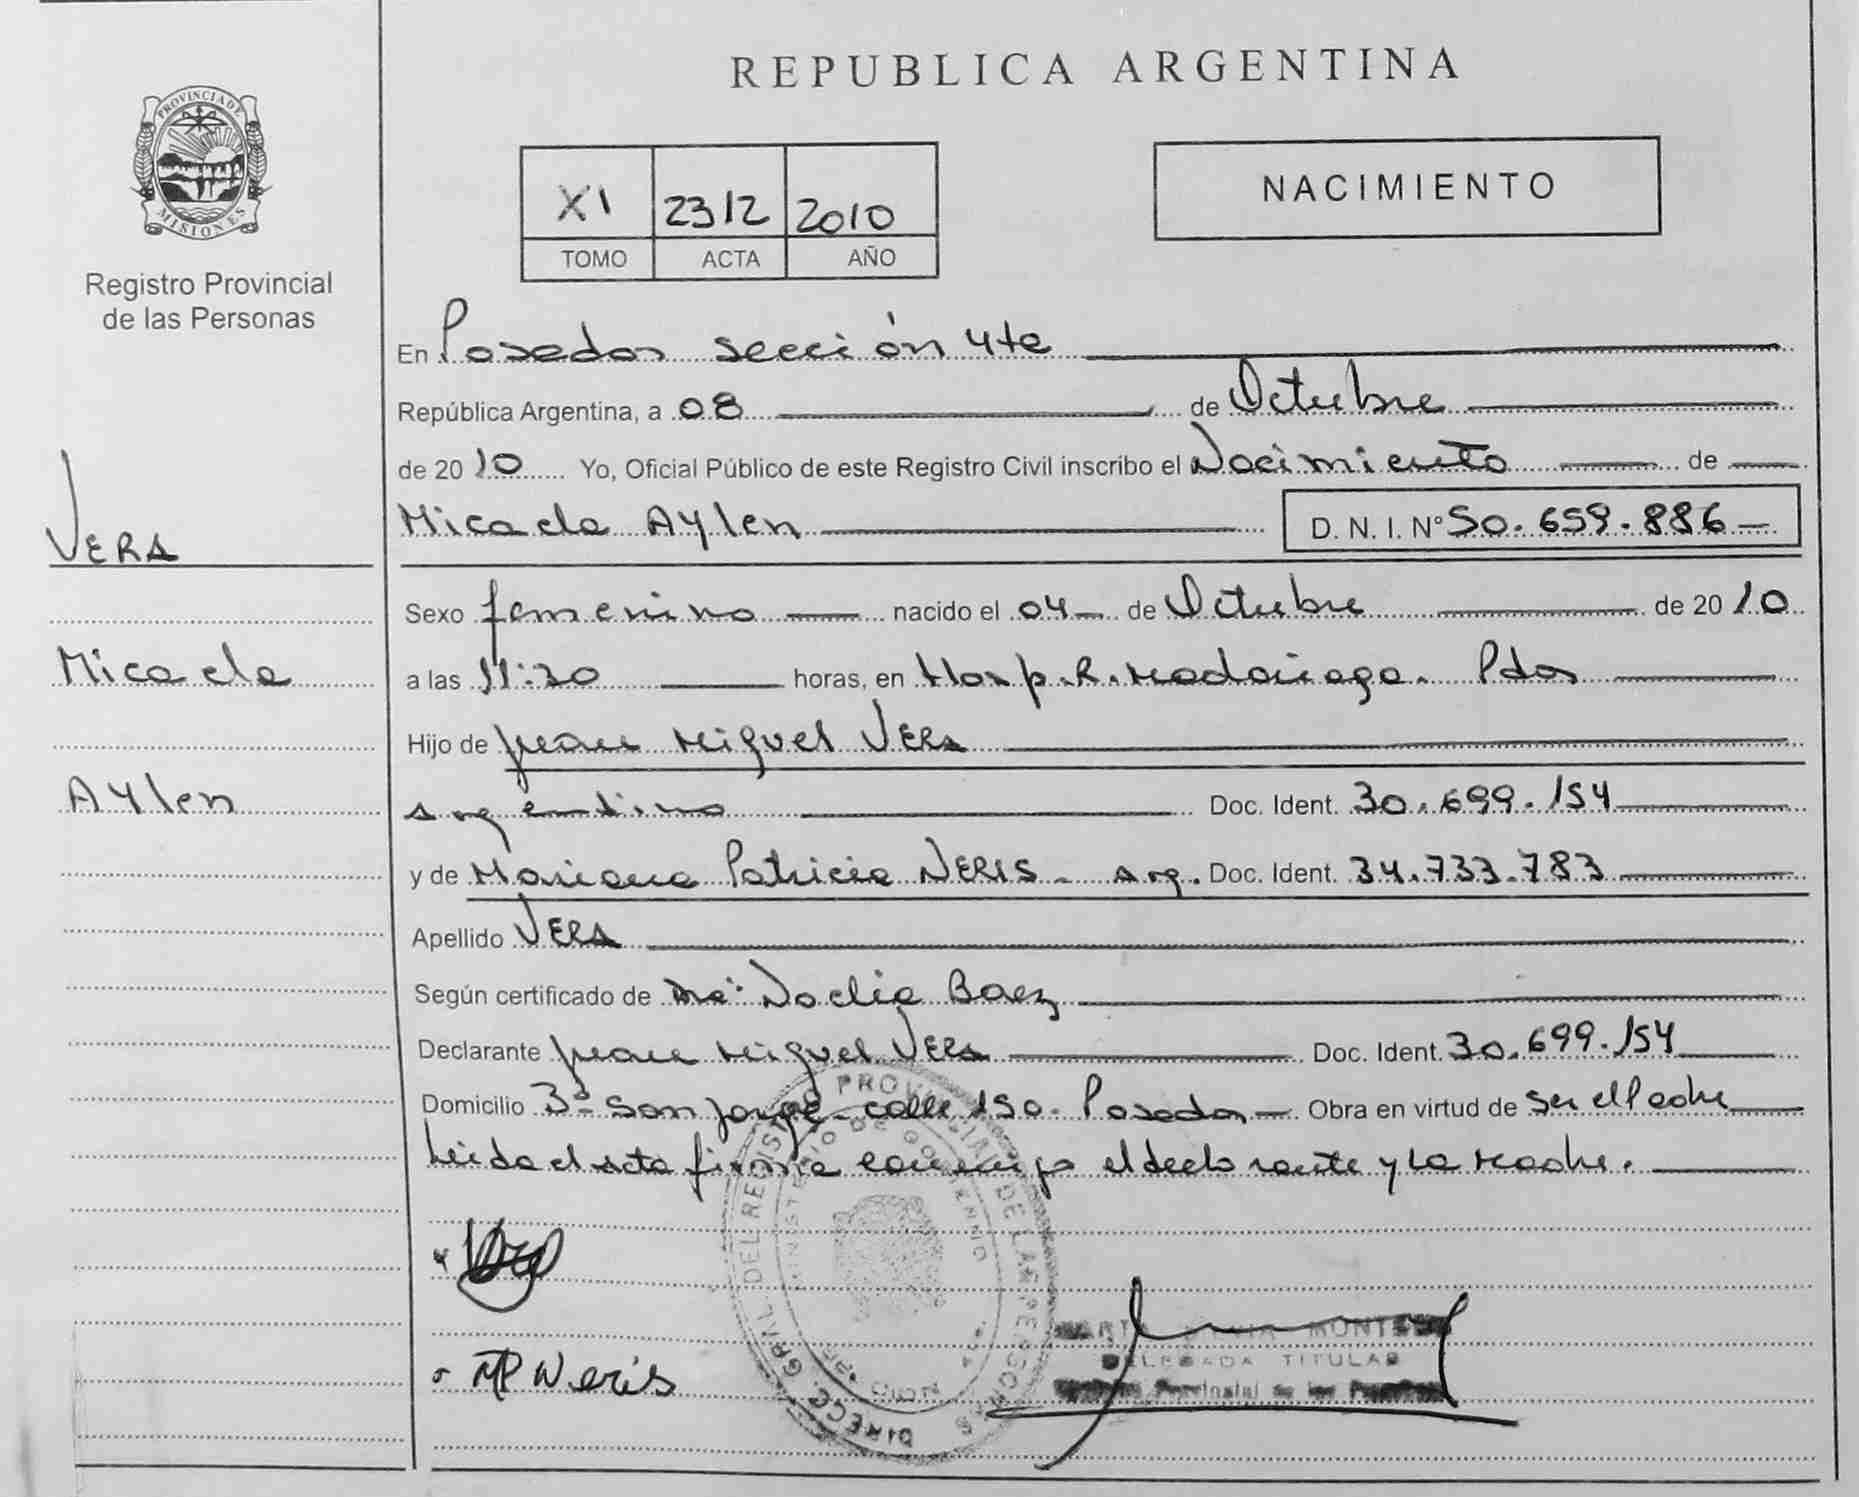 REPUBLICA ARGENTINA
PROVINCIA DE
MISIONES
Registro Provincial
de las Personas
XI 2312 2010
TOMO ACTA AÑO
NACIMIENTO
VERA
Micaela
Aylen
En Posadas sección 4ta
República Argentina, a 08 de Octubre
de 2010 Yo, Oficial Público de este Registro Civil inscribo el Nacimiento de
Micaela Aylen D. N. I. N° 50.659.886
Sexo femenino nacido el 04 de Octubre de 2010
a las 11:30 horas, en Hosp. R. Madariaga. Pdas
Hijo de Juan Miguel VERA
Argentino Doc. Ident. 30.699.154
y de Mariana Patricia NERIS - Arg. Doc. Ident. 34.733.783
Apellido VERA
Según certificado de Dra: Noelia Baez
Declarante Juan Miguel VERA Doc. Ident. 30.699.154
Domicilio San Jorge - calle 150. Posadas Obra en virtud de ser el Padre
Leida el acta firma conmigo el declarante y la Madre.
MP Neris
DIRECC. GRAL. DEL REGISTRO PROVINCIAL DE LAS PERSONAS
MINISTERIO DE GOBIERNO
DELEGADA TITULAR
Provincial de las